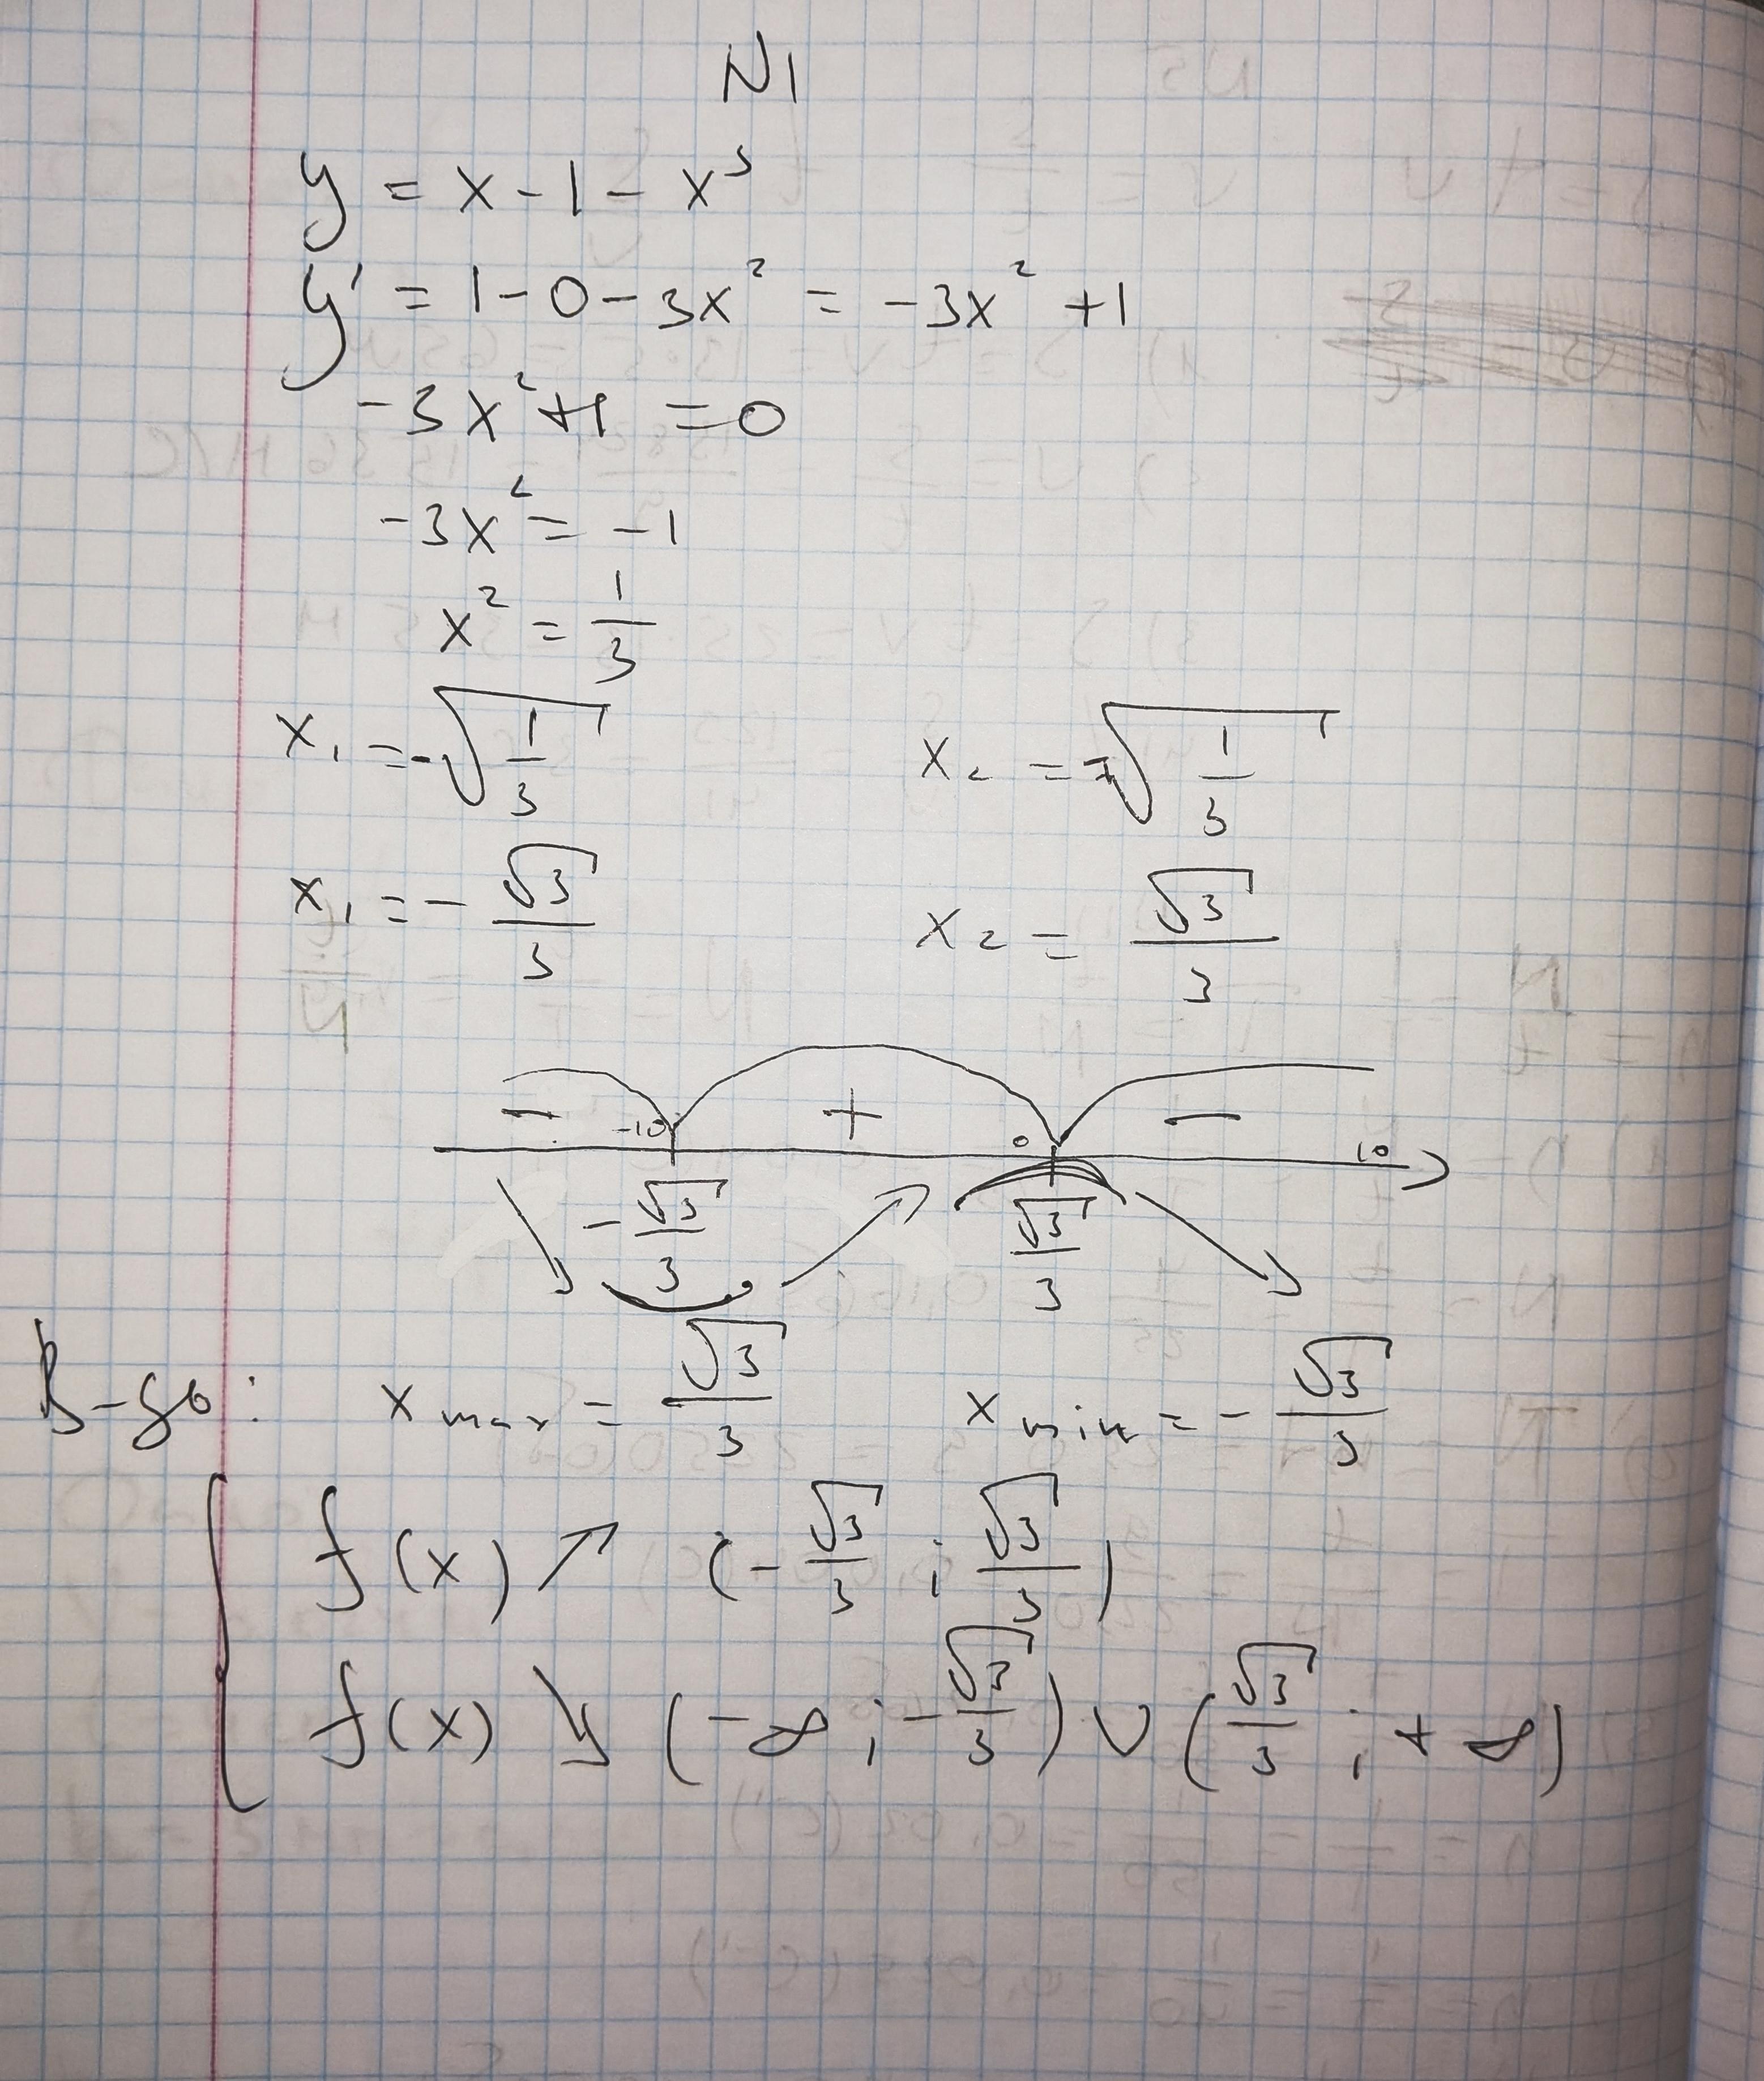 N1
y = x - 1 - x³
y' = 1 - 0 - 3x² = -3x² + 1
-3x² + 1 = 0
-3x² = -1
x² = 1/3
x₁ = -√(1/3) x₂ = +√(1/3)
x₁ = - √3/3 x₂ = √3/3
- -10 + 0 - 10
-√3/3 √3/3
В-дь: x max = √3/3 x min = - √3/3
f(x) ↗ (-√3/3 ; √3/3)
f(x) ↘ (-∞ ; -√3/3) ∪ (√3/3 ; +∞)